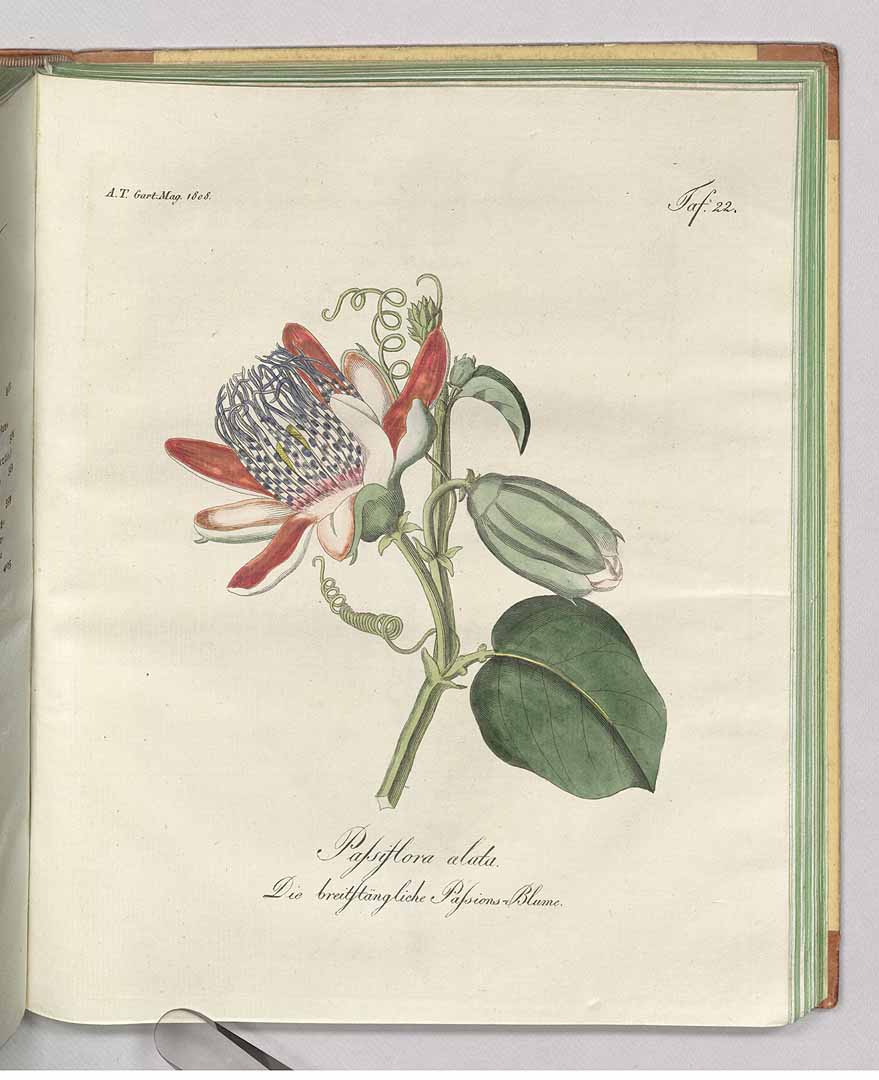 A.T. Gart.Mag. 1808.
Taf. 22.
Paſsiflora alata.
Die breitſtängliche Paſsions-Blume.